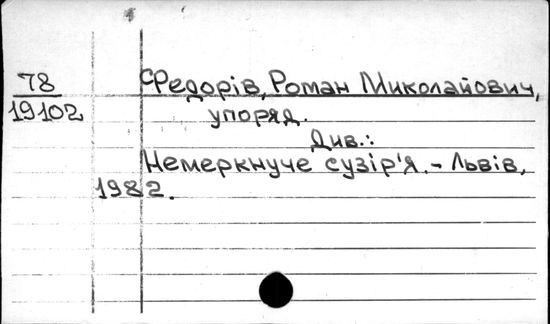 78
19102
Федорів, Роман Миколайович,
упоряд.
Див.:
Немеркнуче сузір'я. - Львів,
1982.